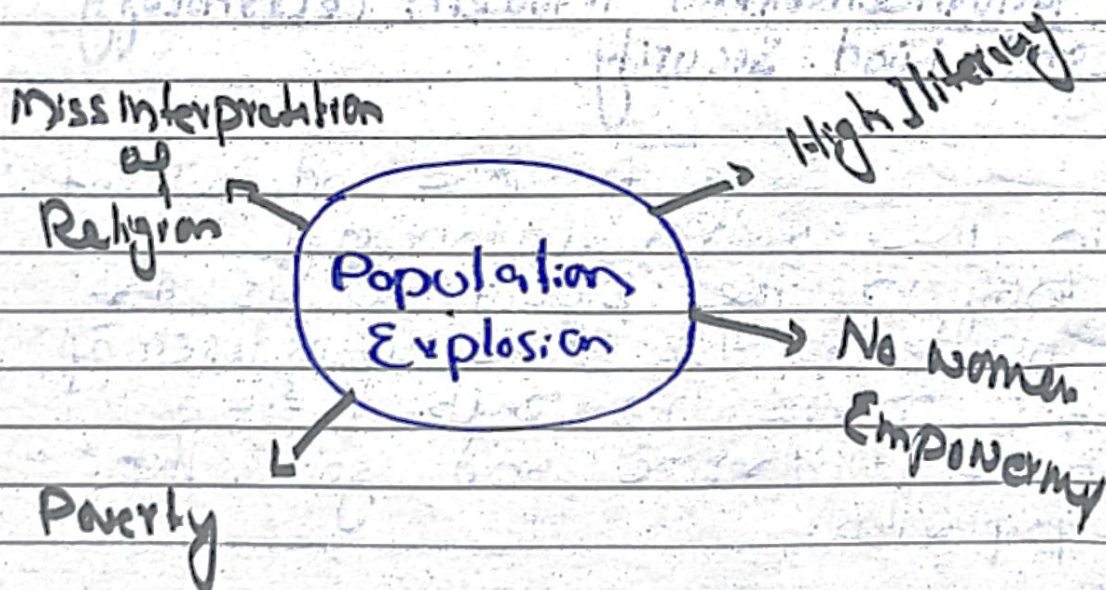 Miss interpretation
of
Religion
High Iliteracy
Population
Explosion
No women
Empowerment
Poverty